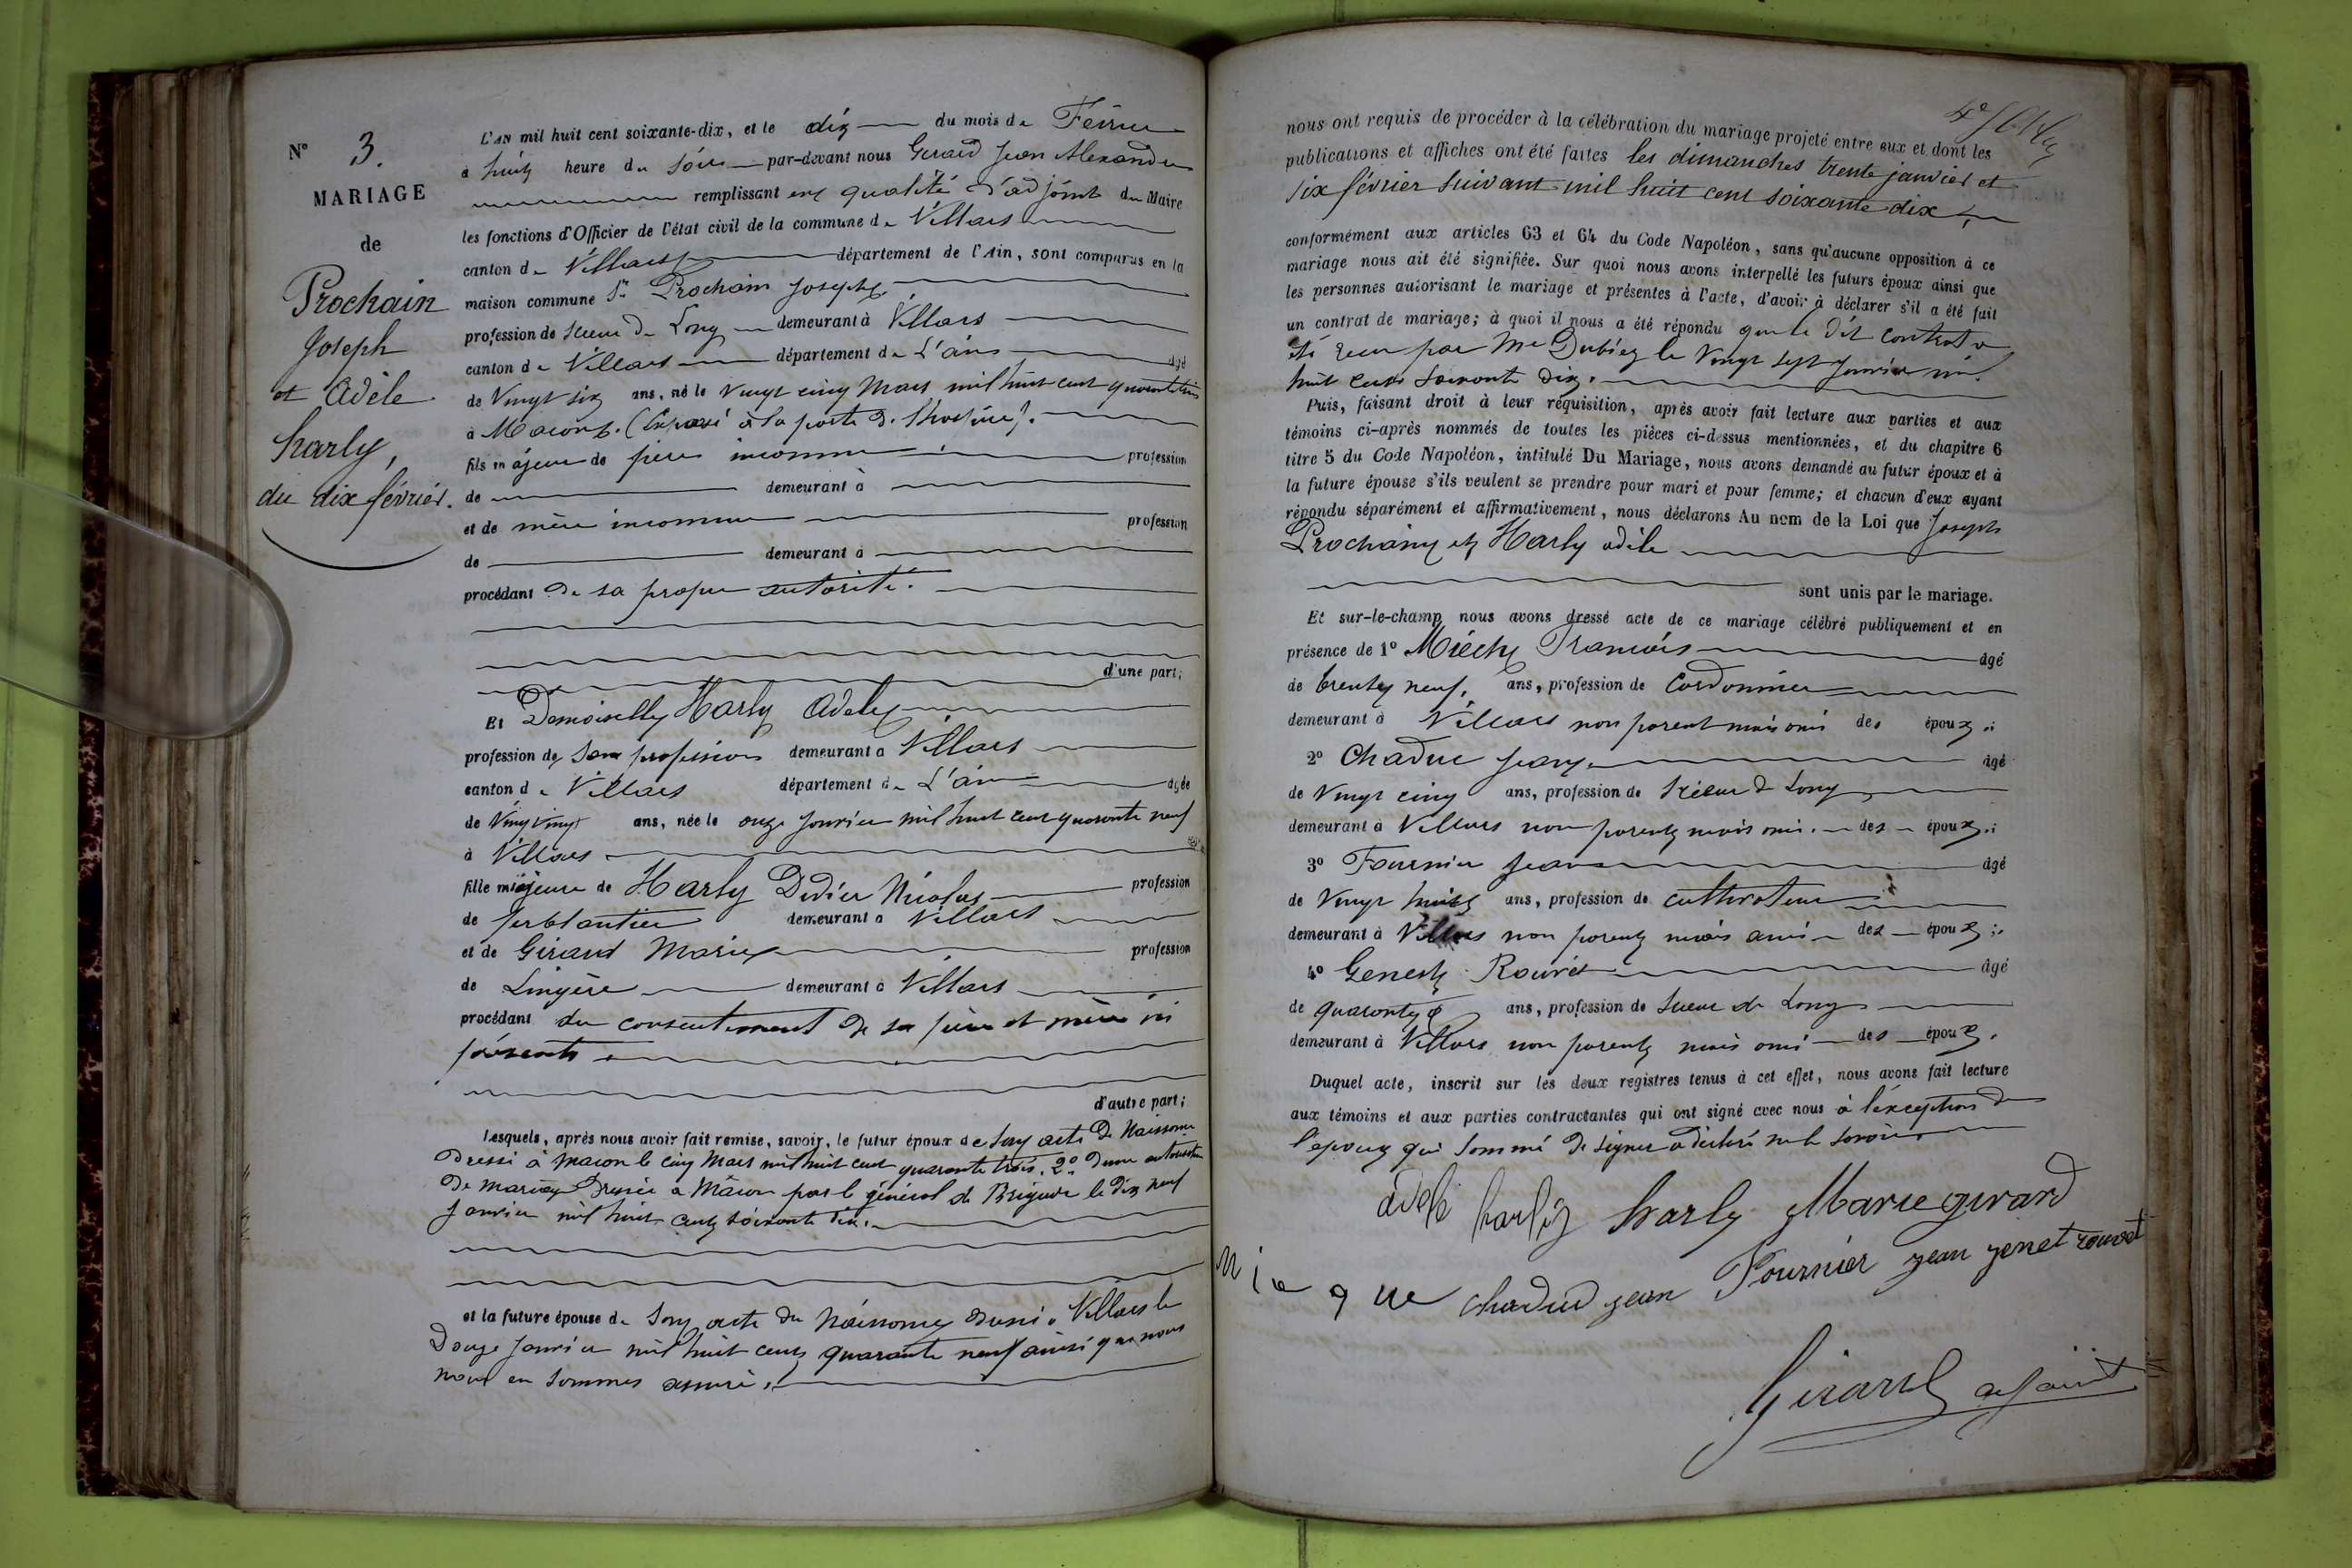 N° 3.
MARIAGE
de
Prochain
Joseph
et Adèle
harly,
du dix février.
L'AN mil huit cent soixante-dix, et le dix du mois de Février
à huit heure du soir par-devant nous Girard Jean Alexandre
remplissant en qualité d'adjoint du Maire
les fonctions d'Officier de l'état civil de la commune de Villars
canton de Villars département de l'Ain, sont comparus en la
maison commune Sr Prochain Joseph
profession de Scieur de Long demeurant à Villars
canton de Villars département de L'ain âgé
de Vingt six ans, né le vingt cinq Mars mil huit cent quarante trois
à Macon. (Exposé à la porte de l'hospice).
fils majeur de père inconnu profession
de demeurant à
et de mère inconnue profession
de demeurant à
procédant de sa propre autorité.
d'une part;
Et Demoiselle Harly Adèle
profession de sans profession demeurant à Villars
canton de Villars département de L'ain âgée
de Vingt vingt ans, née le onze Janvier mil huit cent quarante neuf
à Villars
fille majeure de Harly Didier Nicolas profession
de ferblantier demeurant à Villars
et de Girard Marie profession
de Lingère demeurant à Villars
procédant du consentement de sa père et mère ici
présents.
d'autre part;
Lesquels, après nous avoir fait remise, savoir, le futur époux de son acte de Naissance
dressé à Macon le cinq Mars mil huit cent quarante trois. 2° d'une autorisation
de mariage dressée à Mâcon par le général de Brigade le dix neuf
janvier mil huit cent soixante dix.
et la future épouse de son acte de Naissance dressé à Villars le
Douze Janvier mil huit cent quarante neuf ainsi que nous
nous en sommes assuré.
nous ont requis de procéder à la célébration du mariage projeté entre eux et dont les
publications et affiches ont été faites les dimanches trente janvier et
six février suivant mil huit cent soixante dix
conformément aux articles 63 et 64 du Code Napoléon, sans qu'aucune opposition à ce
mariage nous ait été signifiée. Sur quoi nous avons interpellé les futurs époux ainsi que
les personnes autorisant le mariage et présentes à l'acte, d'avoir à déclarer s'il a été fait
un contrat de mariage; à quoi il nous a été répondu que le dit contrat a
été reçu par Me Dubiez le Vingt sept Janvier mil
huit cent soixante dix.
Puis, faisant droit à leur réquisition, après avoir fait lecture aux parties et aux
témoins ci-après nommés de toutes les pièces ci-dessus mentionnées, et du chapitre 6
titre 5 du Code Napoléon, intitulé Du Mariage, nous avons demandé au futur époux et à
la future épouse s'ils veulent se prendre pour mari et pour femme; et chacun d'eux ayant
répondu séparément et affirmativement, nous déclarons Au nom de la Loi que Joseph
Prochain et Harly adèle
sont unis par le mariage.
Et sur-le-champ nous avons dressé acte de ce mariage célébré publiquement et en
présence de 1° Mièche François âgé
de trente neuf. ans, profession de Cordonnier
demeurant à Villars non parent mais ami des époux.
2° Chaduc Jean âgé
de Vingt cinq ans, profession de Scieur de Long
demeurant à Villars non parent mais ami des époux.
3° Fournier Jean âgé
de Vingt huit ans, profession de cultivateur
demeurant à Villars non parent mais ami des époux
4° Genest Rouvet âgé
de quarante ans, profession de Scieur de Long
demeurant à Villars non parent mais ami des époux.
Duquel acte, inscrit sur les deux registres tenus à cet effet, nous avons fait lecture
aux témoins et aux parties contractantes qui ont signé avec nous à l'exception de
l'époux qui sommé de signer a déclaré ne le savoir.
adèle harly harly Marie girard
chaduc jean Fournier jean jenet rouvet
Girard adjoint